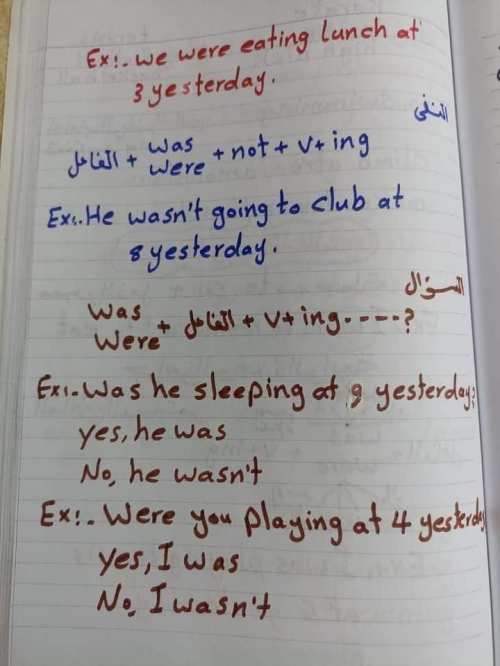 Ex:. we were eating lunch at
3 yesterday.
النفى
الفاعل + was
were + not + v + ing
Ex:. He wasn't going to club at
8 yesterday.
السؤال
Was
Were + الفاعل + v + ing ----?
Ex:. Was he sleeping at 9 yesterday?
yes, he was
No, he wasn't
Ex:. Were you playing at 4 yesterday
yes, I was
No, I wasn't